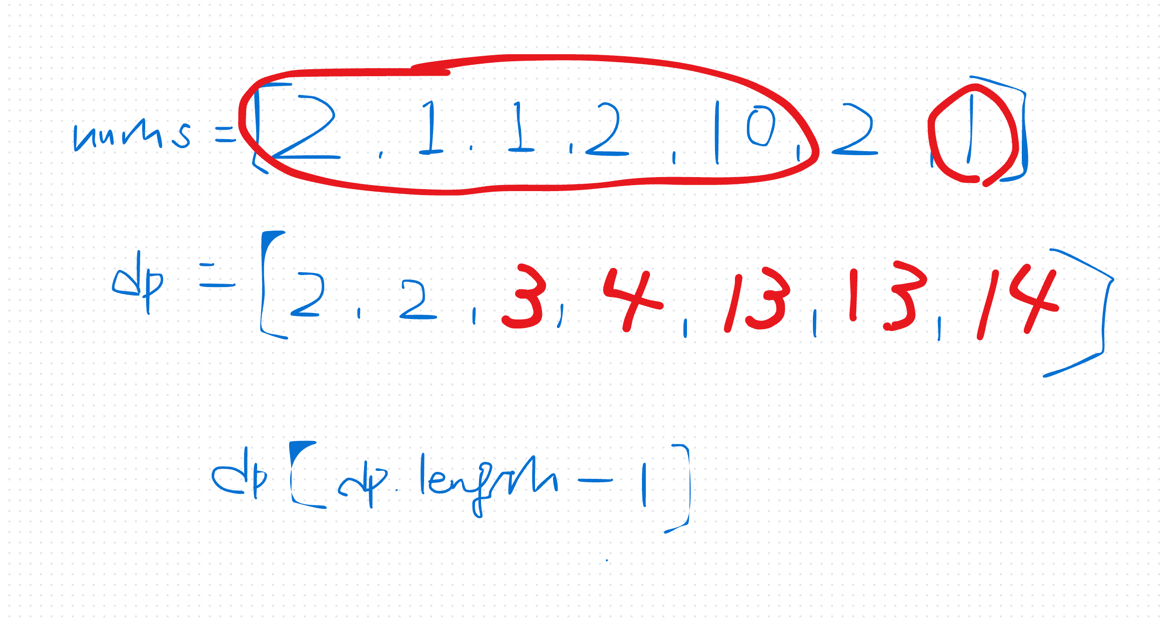 nums = [2, 1, 1, 2, 10, 2, 1]
dp = [2, 2, 3, 4, 13, 13, 14]
dp[dp.length - 1]